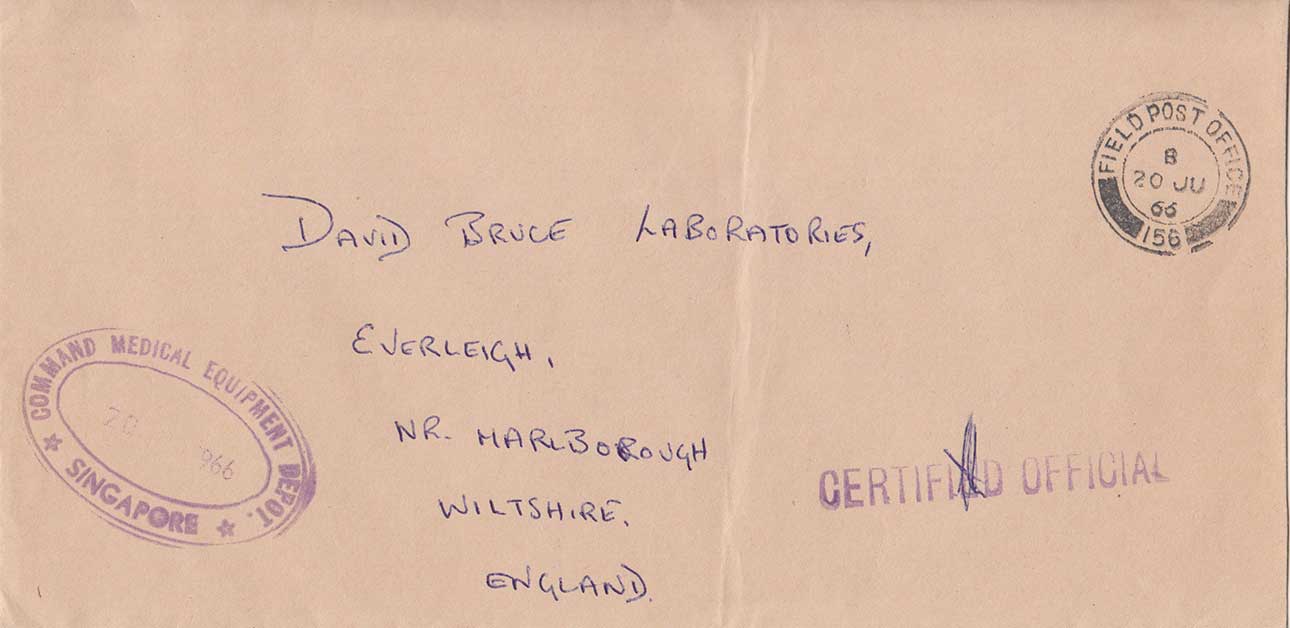 FIELD POST OFFICE
B
20 JU
66
156
DAVID BRUCE LABORATORIES,
EVERLEIGH,
NR. MARLBOROUGH
WILTSHIRE.
ENGLAND.
COMMAND MEDICAL EQUIPMENT DEPOT.
20 966
★ SINGAPORE ★
CERTIFIED OFFICIAL